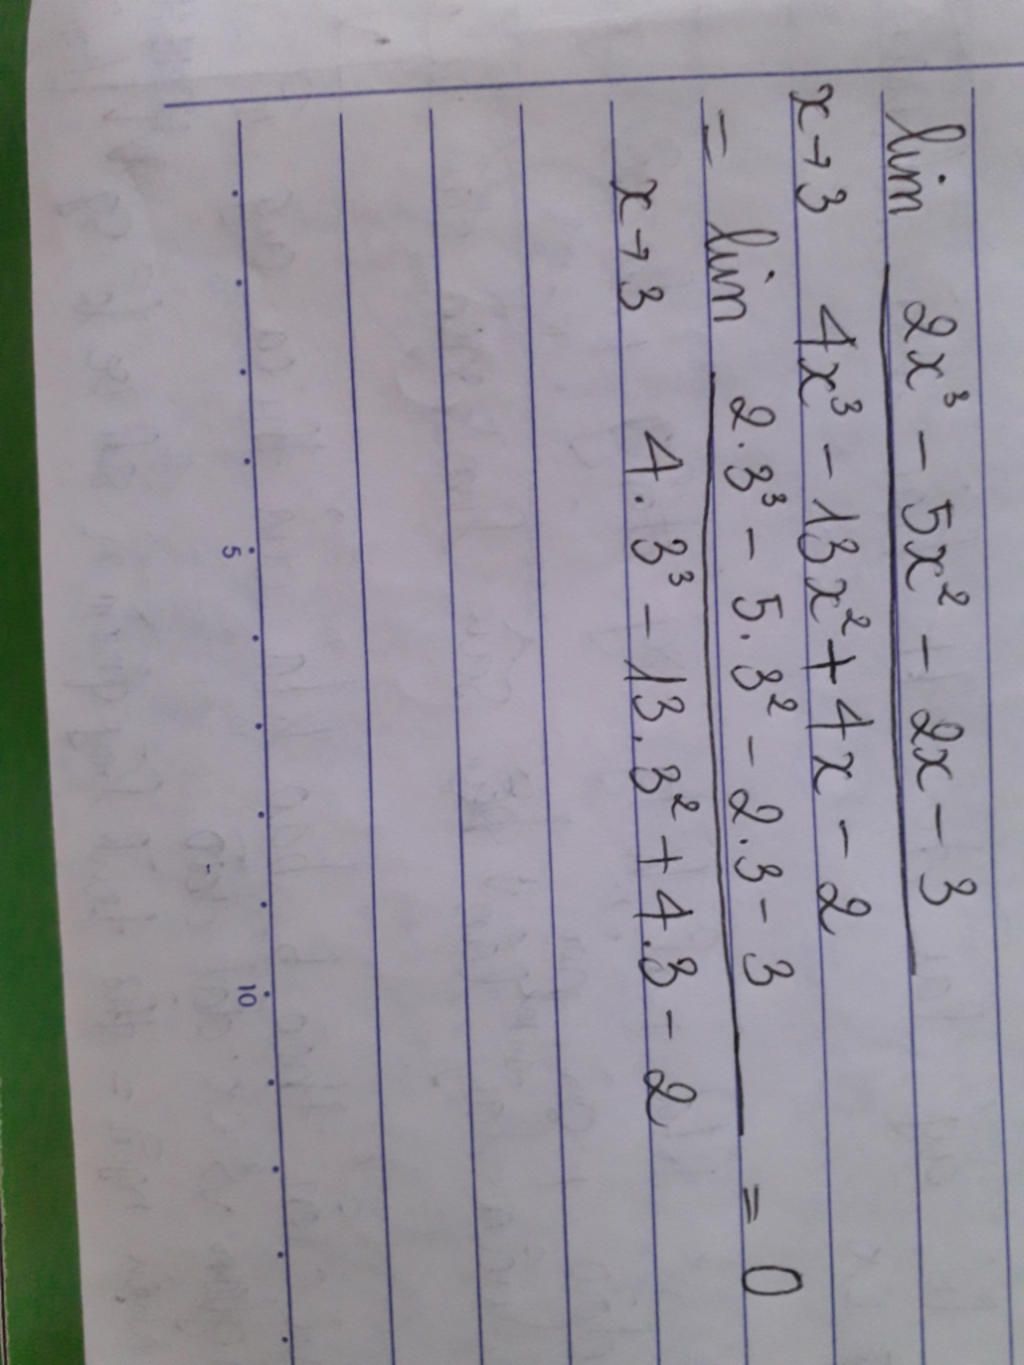 lim 2x³ - 5x² - 2x - 3
x→3 4x³ - 13x² + 4x - 2
= lim 2.3³ - 5.3² - 2.3 - 3 = 0
x→3 4.3³ - 13.3² + 4.3 - 2
5 10